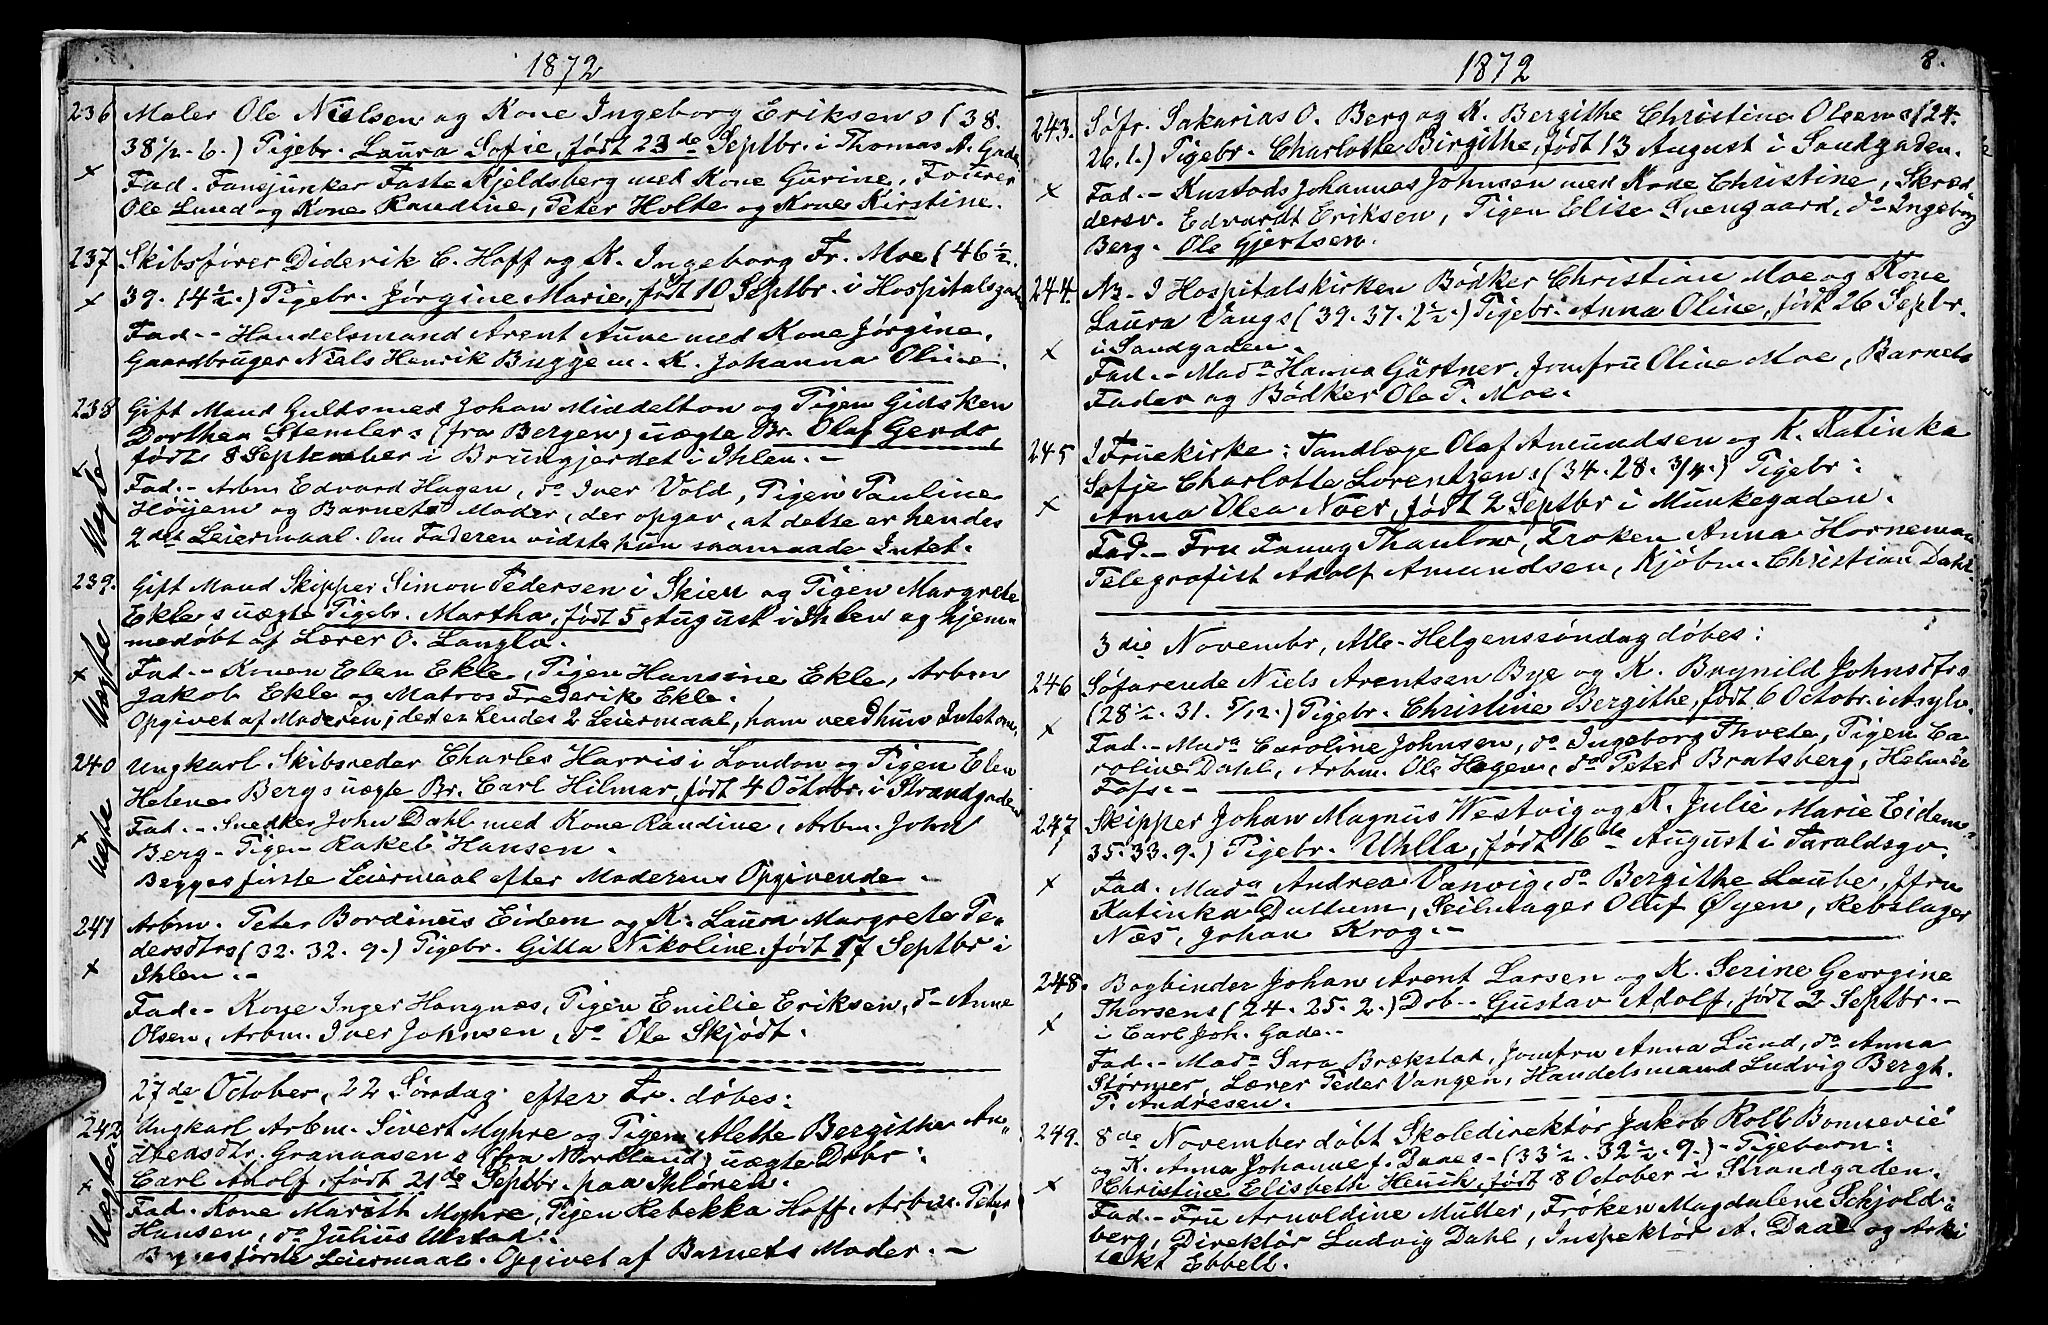 1872
236 Maler Ole Nielsen og Kone Ingeborg Eriksens (38.
38 1/2 - 6.) Pigebr. Laura Sofie, født 23de Septbr. i Thomas A. Gade
Fad. - Fansjunker Faste Kjeldsberg med Kone Gurine, Fourer
Ole Lund og Kone Randine, Peter Holte og Kone Kirstine.
237 Skibsfører Diderik C. Hoff og K. Ingeborg Fr. Moe (46 1/2.
x 39. 14 1/2.) Pigebr. Jørgine Marie, født 10 Septbr. i Hospitalsgade
Fad. - Handelsmand Arent Aune med Kone Jørgine,
Gaardbruger Niels Henrik Bugge m. K. Johanna Oline.
238 Gift Mand Guldsmed Johan Middelton og Pigen Gidsken
Dorthea Stemlers (fra Bergen) uægte Br. Olaf Gerdt
født 8 September i Brungjerdet i Ihlen. -
x Uægte
Fad. - Arbm Edvard Hagen, do Iver Vold, Pigen Pauline
Høyem og Barnets Moder, der opgav, at dette er hendes
2det Leiermaal. Om Faderen vidste hun saamaade Intet.
239. Gift Mand Skipper Simon Pedersen i Skien og Pigen Margrete
Ekles uægte Pigebr. Martha, født 5 August i Ihlen og hjem-
medøbt af Lærer O. Langlo.
x Uægte
Fad. - Konen Elen Ekle, Pigen Hansine Ekle, Arbm
Jakob Ekle og Matros Frederik Ekle.
Opgivet af Moderen, det er hendes 2 Leiermaal, ham veed hun Intet om.
240 Ungkarl Skibsreder Charles Harris i London og Pigen Elen
Helene Bergs uægte Br. Carl Hilmar, født 4 Octobr. i Strandgaden
x Uægte
Fad. - Snedker John Dahl med Kone Randine, Arbm. John
Berg - Pigen Rakel Hansen.
Begges første Leiermaal efter Moderens Opgivende -
241 Arbm. Peter Bordinus Eidem og K. Laura Margrete Pe-
dersdtrs (32. 32. 9.) Pigebr. Gitta Nikoline, født 17 Septbr i
x Ihlen. -
Fad. - Kone Inger Hangnæs, Pigen Emilie Eriksen, do Anne
Olsen, Arbm. Iver Johnsen, do Ole Skjødt.
27de October, 22 Søndag efter Tr. døbes:
242 Ungkarl Arbm. Sivert Myhre og Pigen Alette Bergithe An-
Granaasens (fra Nordland) uægte Drbr:
x Uægte Carl Adolf, født 21de Septbr. paa Ihløren.
Fad. - Kone Marith Myhre, Pigen Rebekka Hoff, Arbm. Peter
Hansen, do Julius Ulstad.
Begges første Leiermaal. Opgivet af Barnets Moder. -
1872
8.
243. Søfr. Sakarias O. Berg og K. Bergithe Christine Olsens (24.
26. 1.) Pigebr. Charlotte Birgithe, født 13 August i Sandgaden.
x Fad. - Kustods Johannes Johnsen med Kone Christine, Skræd
dersv. Edvardt Eriksen, Pigen Elise Svengaard, do Ingeborg
Berg. Ole Gjertsen.
244. Nb. I Hospitalskirken Bødker Christian Moe og Kone
Laura Vangs (39. 37. 2 1/2.) Pigebr. Anna Oline, født 26 Septbr.
x i Sandgaden.
Fad. - Mada Hanna Gärtner, Jomfru Oline Moe, Barnets
Fader og Bødker Ole P. Moe.
245 I Fruekirke: Tandlæge Olaf Amundsen og K. Katinka
Sofie Charlotte Lorentzens (34. 28. 3/4.) Pigebr:
x Anna Olea Noer, født 2 Septbr i Munkegaden.
Fad. - Fru Fanny Thaulow, Frøken Anna Horneman
Telegrafist Adolf Amundsen, Kjøbm. Christian Dahl.
3die Novembr, Alle-Helgenssøndag døbes:
246 Søfarende Niels Arentsen Bye og K. Brynild Johnsdtrs
(28 1/2. 31. 5/12.) Pigebr. Christine Bergithe, født 6 Octobr. i Asylv.
x Fad. - Mada Caroline Johnsen, do Ingeborg Thvete, Pigen Ca-
roline Dahl, Arbm. Ole Hagen, do Peter Bratsberg, Helmer
Tofs. -
247 Skipper Johan Magnus Westvig og K. Julie Marie Eidem
35. 33. 9.) Pigebr. Uhlla, født 16de August i Taraldsgv.
x Fad. Mada Andrea Vanvig, do Bergithe Laube, Jfru
Katinka Duttum, Seilmager Oluf Øyen, Rebslager
Næs, Johan Krog. -
248. Bogbinder Johan Arent Larsen og K. Serine Georgine
Thorsens (24. 25. 2.) Drb. - Gustav Adolf, født 2 Septbr. -
x i Carl Joh. Gade. -
Fad. - Mada Sara Brækstad, Jomfru Anna Lund, do Anna
Størmer, Lærer Peder Vangen, Handelsmand Ludvig Bergh.
P. Andresen.
249. 8de November døbt Skoledirektør Jakob Roll Bonnevie
og K. Anna Johanne f. Daaes - (33 1/2. 32 1/2. 9.) - Pigebarn:
x Christine Elisbeth Henck, født 8 October i Strandgaden.
Fad. - Fru Arnoldine Müller, Frøken Magdalene Schjold-
berg, Direktør Ludvig Dahl, Inspektør A. Daae og Arki
tekt Ebbell.